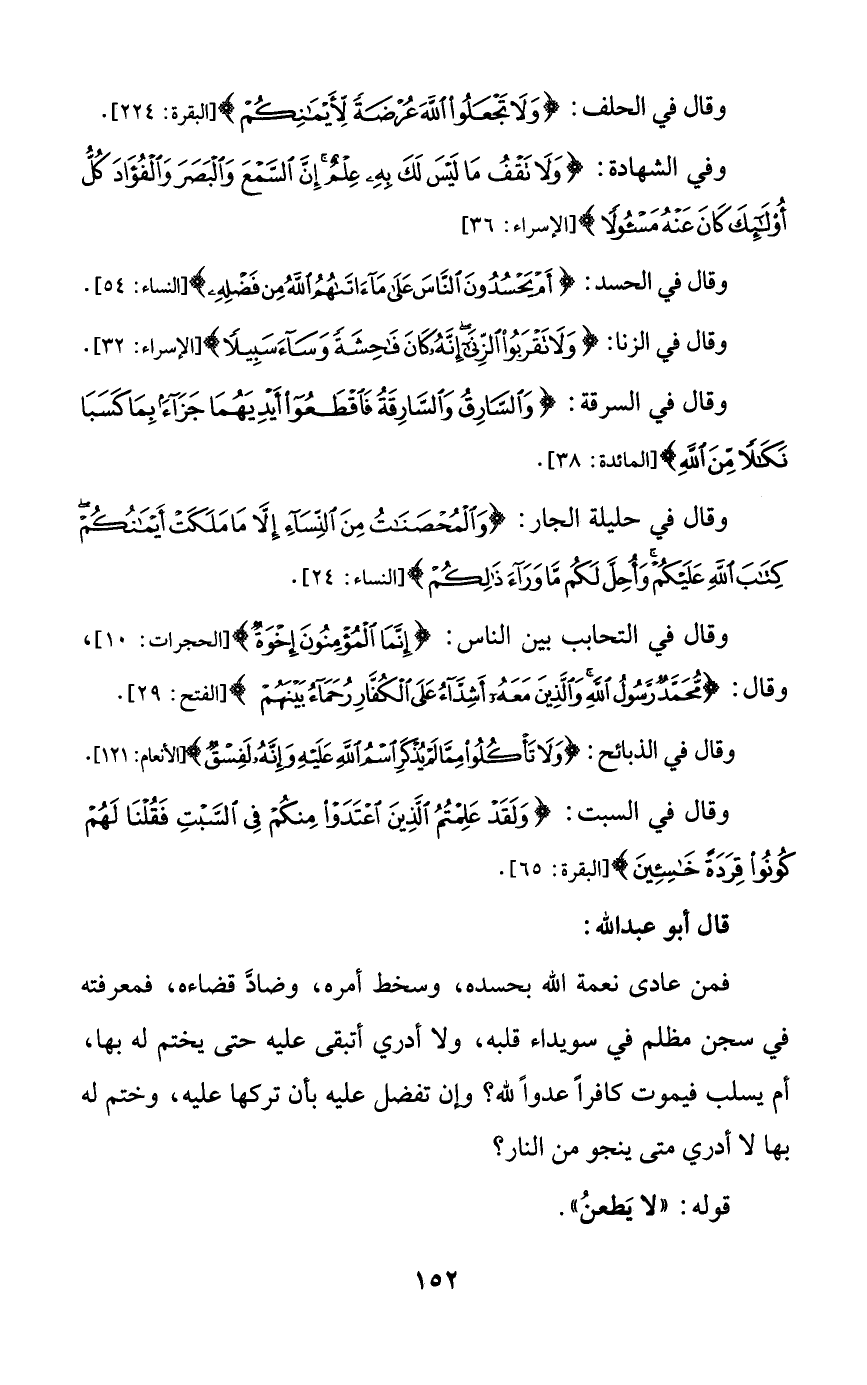 وقال في الحلف: ﴿وَلَا تَجْعَلُوا۟ ٱللَّهَ عُرْضَةً لِّأَيْمَٰنِكُمْ﴾ [البقرة: ٢٢٤].
وفي الشهادة: ﴿وَلَا تَقْفُ مَا لَيْسَ لَكَ بِهِۦ عِلْمٌ ۚ إِنَّ ٱلسَّمْعَ وَٱلْبَصَرَ وَٱلْفُؤَادَ كُلُّ
أُو۟لَٰٓئِكَ كَانَ عَنْهُ مَسْـُٔولًا﴾ [الإسراء: ٣٦]
وقال في الحسد: ﴿أَمْ يَحْسُدُونَ ٱلنَّاسَ عَلَىٰ مَآ ءَاتَىٰهُمُ ٱللَّهُ مِن فَضْلِهِۦ﴾ [النساء: ٥٤].
وقال في الزنا: ﴿وَلَا تَقْرَبُوا۟ ٱلزِّنَىٰٓ ۖ إِنَّهُۥ كَانَ فَٰحِشَةً وَسَآءَ سَبِيلًا﴾ [الإسراء: ٣٢].
وقال في السرقة: ﴿وَٱلسَّارِقُ وَٱلسَّارِقَةُ فَٱقْطَعُوٓا۟ أَيْدِيَهُمَا جَزَآءًۢ بِمَا كَسَبَا
نَكَٰلًا مِّنَ ٱللَّهِ﴾ [المائدة: ٣٨].
وقال في حليلة الجار: ﴿وَٱلْمُحْصَنَٰتُ مِنَ ٱلنِّسَآءِ إِلَّا مَا مَلَكَتْ أَيْمَٰنُكُمْ ۖ
كِتَٰبَ ٱللَّهِ عَلَيْكُمْ ۚ وَأُحِلَّ لَكُم مَّا وَرَآءَ ذَٰلِكُمْ﴾ [النساء: ٢٤].
وقال في التحابب بين الناس: ﴿إِنَّمَا ٱلْمُؤْمِنُونَ إِخْوَةٌ﴾ [الحجرات: ١٠]،
وقال: ﴿مُّحَمَّدٌ رَّسُولُ ٱللَّهِ ۚ وَٱلَّذِينَ مَعَهُۥٓ أَشِدَّآءُ عَلَى ٱلْكُفَّارِ رُحَمَآءُ بَيْنَهُمْ﴾ [الفتح: ٢٩].
وقال في الذبائح: ﴿وَلَا تَأْكُلُوا۟ مِمَّا لَمْ يُذْكَرِ ٱسْمُ ٱللَّهِ عَلَيْهِ وَإِنَّهُۥ لَفِسْقٌ﴾ [الأنعام: ١٢١].
وقال في السبت: ﴿وَلَقَدْ عَلِمْتُمُ ٱلَّذِينَ ٱعْتَدَوْا۟ مِنكُمْ فِى ٱلسَّبْتِ فَقُلْنَا لَهُمْ
كُونُوا۟ قِرَدَةً خَٰسِـِٔينَ﴾ [البقرة: ٦٥].
قال أبو عبدالله:
فمن عادى نعمة الله بحسده، وسخط أمره، وضادَّ قضاءه، فمعرفته
في سجن مظلم في سويداء قلبه، ولا أدري أتبقى عليه حتى يختم له بها،
أم يسلب فيموت كافراً عدواً لله؟ وإن تفضل عليه بأن تركها عليه، وختم له
بها لا أدري متى ينجو من النار؟
قوله: «لا يَطعنُ».
١٥٢